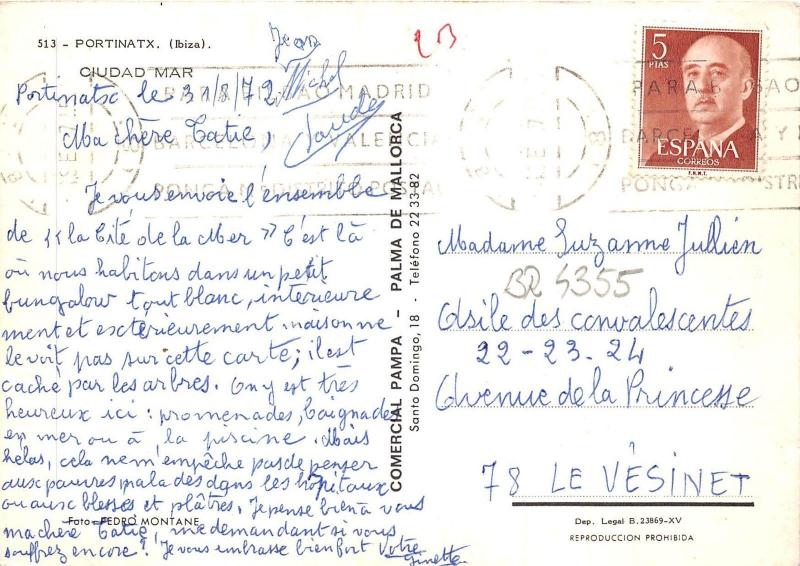 513 - PORTINATX. (Ibiza).
CIUDAD MAR
Portinatx le 31/8/72
Jean
Michel
23
Ma chère Tatie,
Je vous envoie l'ensemble
de "la Cité de la Mer" C'est là
où nous habitons dans un petit
bungalow tout blanc, intérieure
ment et extérieurement. maison ne
le voit pas sur cette carte; il est
caché par les arbres. On y est très
heureux ici : promenades, baignades
en mer ou à la piscine. Mais
helas, cela ne m'empêche pas de penser
aux pauvres malades dans les hôpitaux
ou aux blessés et plâtrés. Je pense bien à vous
ma chère Tatie, me demandant si vous
souffrez encore? Je vous embrasse bien fort Votre
Ginette
Foto - PEDRO MONTANE
COMERCIAL PAMPA - PALMA DE MALLORCA
Santo Domingo, 18 - Teléfono 22 33-82
5
PTAS
ESPAÑA
CORREOS
F.N.M.T.
MADRID
BARCELONA VALENCIA
PONGA DISTRITO POSTAL
PARA
BARCE
PONGA
Madame Suzanne Jullien
BR 4355
Asile des convalescentes
22-23-24
Avenue de la Princesse
78 LE VÉSINET
Dep. Legal B. 23869-XV
REPRODUCCION PROHIBIDA